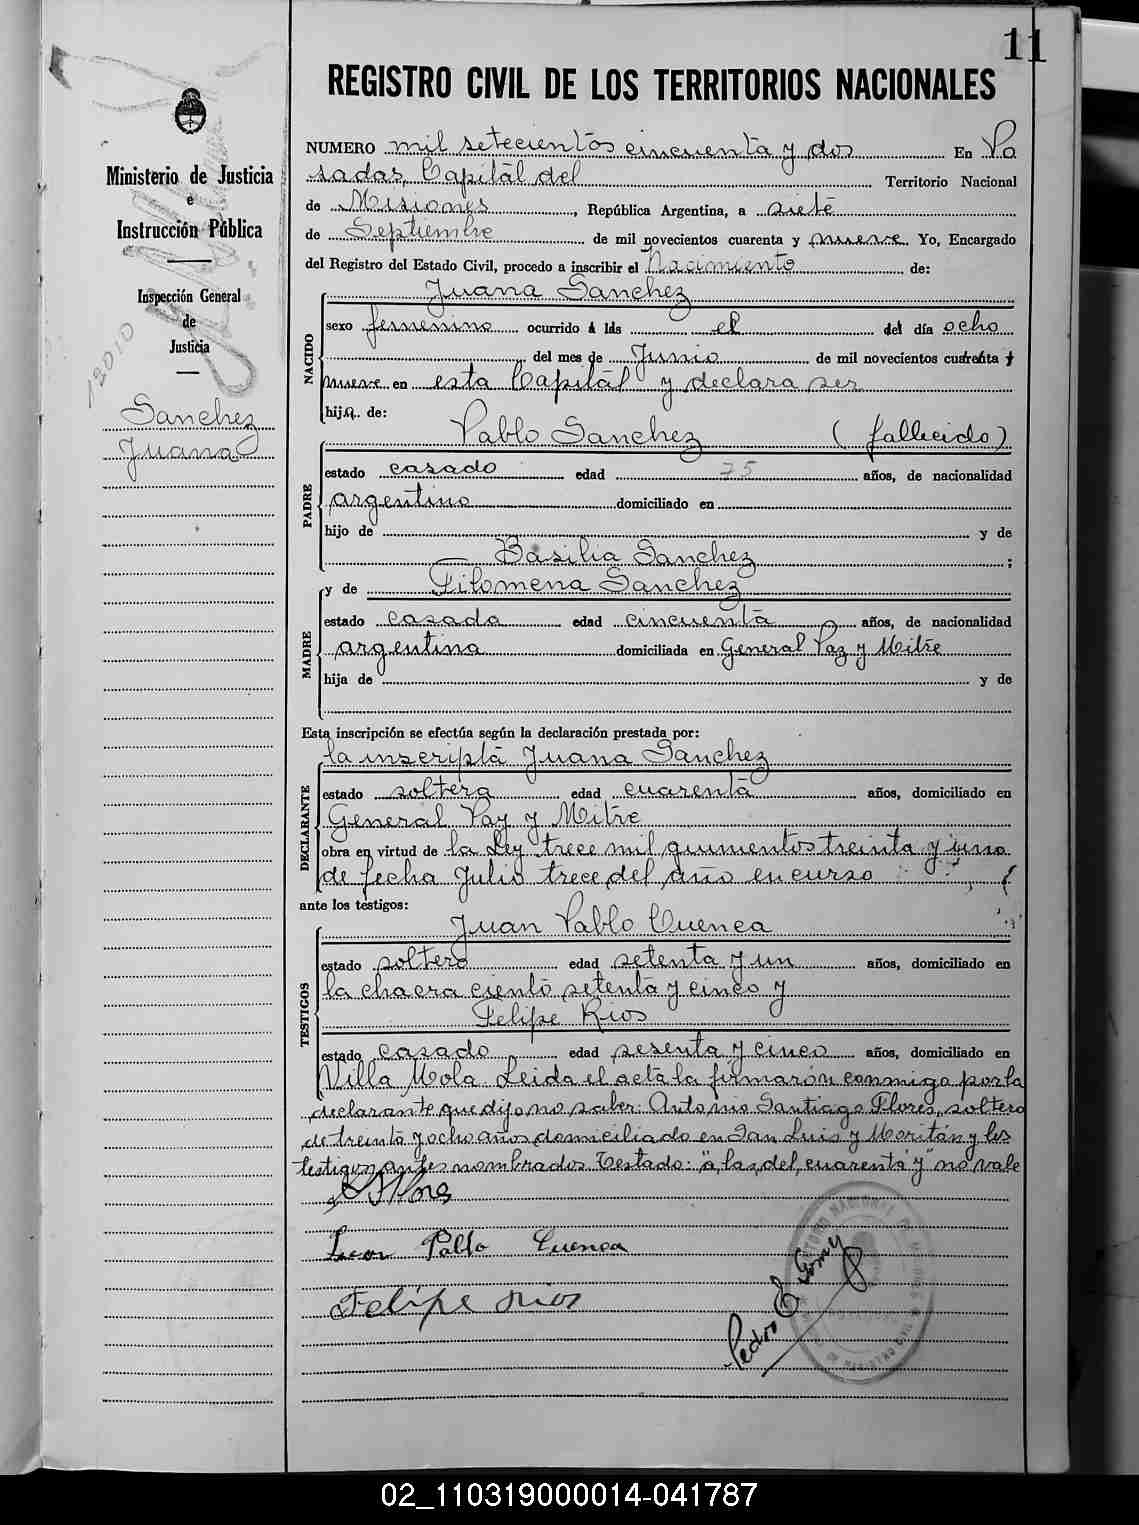 11
REGISTRO CIVIL DE LOS TERRITORIOS NACIONALES
Ministerio de Justicia
e
Instrucción Pública
Inspección General
de
Justicia
Sanchez
Juana
NUMERO mil setecientos cincuenta y dos En Po
sadas, Capital del Territorio Nacional
de Misiones, República Argentina, a siete
de Septiembre de mil novecientos cuarenta y nueve Yo, Encargado
del Registro del Estado Civil, procedo a inscribir el Nacimiento de:
NACIDO
Juana Sanchez
sexo femenino ocurrido á las el del día ocho
del mes de Junio de mil novecientos cuarenta y
nueve en esta Capital y declara ser
hija de:
PADRE
Pablo Sanchez (fallecido)
estado casado edad 75 años, de nacionalidad
argentino domiciliado en
hijo de y de
Basilia Sanchez ;
MADRE
y de Filomena Sanchez
estado casada edad cincuenta años, de nacionalidad
argentina domiciliada en General Paz y Mitre
hija de y de
Esta inscripción se efectúa según la declaración prestada por:
DECLARANTE
la inscripta Juana Sanchez
estado soltera edad cuarenta años, domiciliado en
General Paz y Mitre
obra en virtud de la Ley trece mil quinientos treinta y uno
de fecha Julio trece del año en curso
ante los testigos:
TESTIGOS
Juan Pablo Cuenca
estado soltero edad setenta y un años, domiciliado en
la chacra ciento setenta y cinco y
Felipe Rios
estado casado edad sesenta y cinco años, domiciliado en
Villa Mola. Leida el acta la firmarón conmigo por la
declarante que dijo no saber: Antonio Santiago Flores, soltero
de treinta y ocho años domiciliado en San Luis y Moritán y los
testigos antes nombrados. Testado: "a, las, del, cuarenta y" no vale
Pablo Cuenca
Felipe Rios
Pedro
02_110319000014-041787